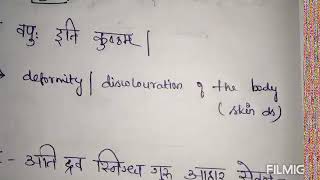 वपुः इति कुष्ठम् |
deformity / discolouration of the body
( skin ds )
:- अति द्रव स्निग्ध गुरु आहार
FILMIG